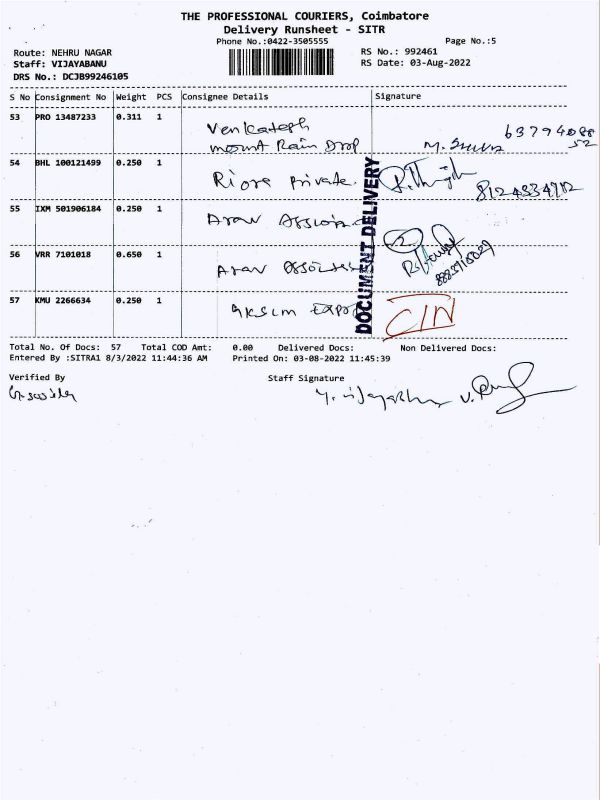 THE PROFESSIONAL COURIERS, Coimbatore
Delivery Runsheet - SITR
Phone No.:0422-3505555
Page No.:5
Route: NEHRU NAGAR
RS No.: 992461
Staff: VIJAYABANU
RS Date: 03-Aug-2022
DRS No.: DCJB99246105
S No Consignment No Weight PCS Consignee Details Signature
53 PRO 13487233 0.311 1 Venkatesh
mount Rain Drop
54 BHL 100121499 0.250 1 Riora private.
8124334982
55 IXM 501906184 0.250 1 Arav
56 VRR 7101018 0.650 1 Arav
57 KMU 2266634 0.250 1
C/N
DOCUMENT DELIVERY
Total No. Of Docs: 57 Total COD Amt: 0.00 Delivered Docs: Non Delivered Docs:
Entered By :SITRA1 8/3/2022 11:44:36 AM Printed On: 03-08-2022 11:45:39
Verified By Staff Signature